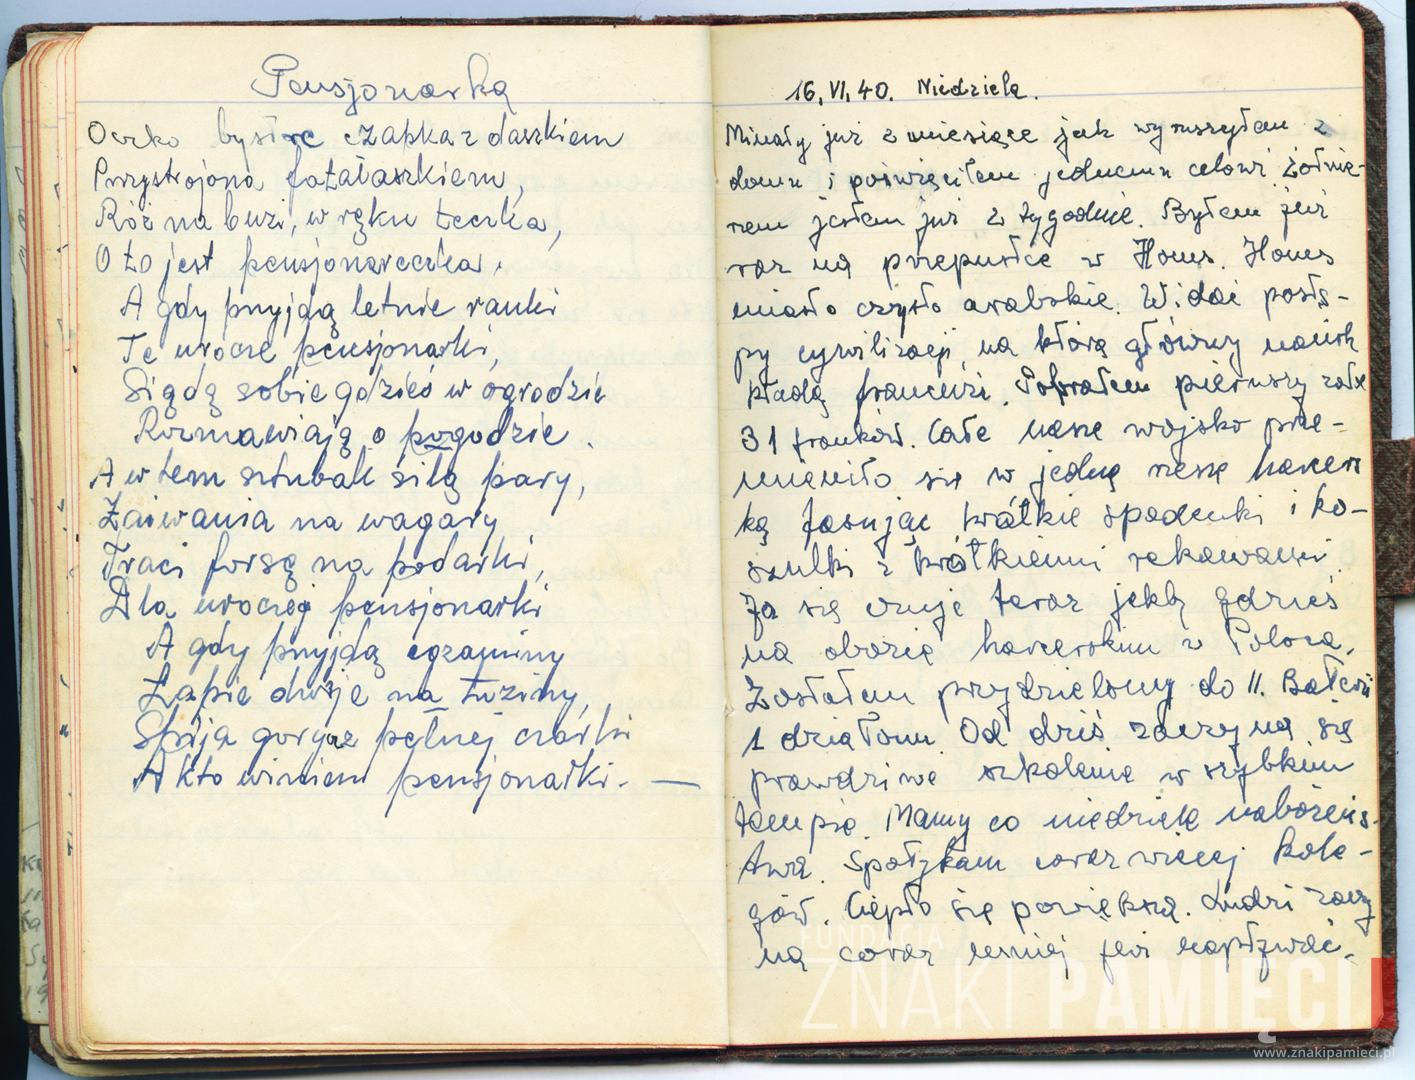 Pensjonarką
Oczko bystre czapka z daszkiem
Przystrojona fatałaszkiem,
Róż na buzi, w ręku teczka,
O to jest pensjonareczka.
A gdy przyjdą letnie ranki
Te urocze pensjonarki,
Siądą sobie gdzieś w ogrodzie
Rozmawiają o pogodzie.
A w tem sztubak siłą pary,
Zaiwania na wagary
Traci forsę na podarki,
Dla uroczej pensjonarki
A gdy przyjdą egzaminy
Łapie dwóje na tuziny
Spija gorycz pełnej czarki
A kto winien pensjonarki. —
16. VI. 40. Niedziela.
Minęły już 2 miesiące jak wyruszyłem z
domu i poświęciłem jednemu celowi Żołnie-
rzem jestem już 2 tygodnie. Byłem już
raz na przepustce w Homs. Homs
miasto czysto arabskie. Widać postę-
py cywilizacji na którą główny nacisk
kładą francuzi. Pobrałem pierwszy żołd
31 franków. Całe nasze wojsko prze-
mieniło się w jedną rzeszę harcers
ką fasując krótkie spodenki i ko-
szulki z krótkiemi rekawami
Ja się czuje teraz jakby gdzieś
na obozie harcerskim w Polsce.
Zostałem przydzielony do II. Baterii
1 działonu. Od dziś zaczyna się
prawdziwe szkolenie w szybkim
tempie. Mamy co niedziele nabożeńs-
twa. Spotykam coraz więcej kole-
gów. Ciepło się powiększa. Ludzi zaczy
na coraz mniej już napływać.
FUNDACJA
ZNAKI PAMIĘCI
www.znakipamieci.pl